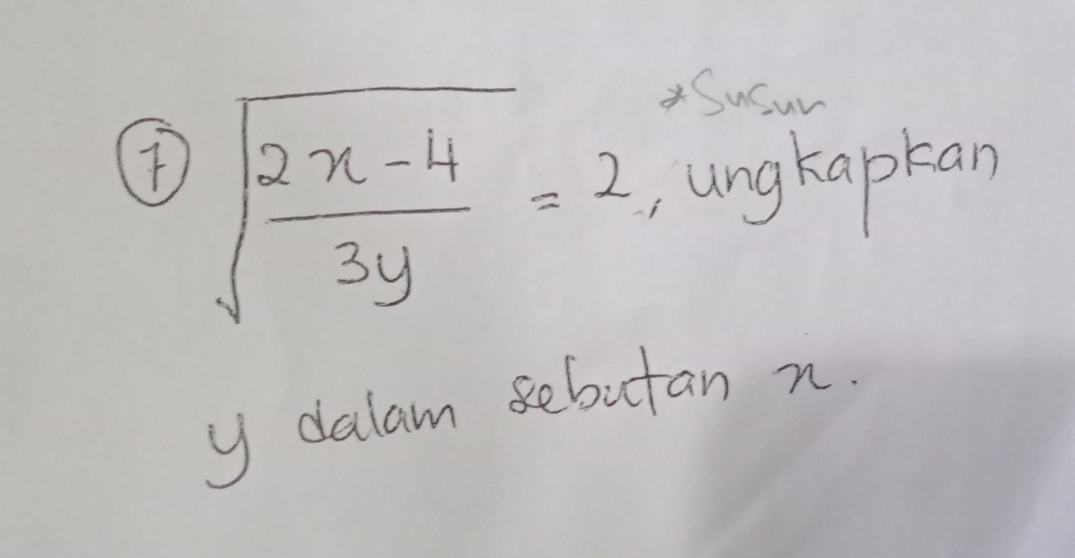 *Susun
⑦ √((2x-4)/(3y)) = 2, ungkapkan
y dalam sebutan x.